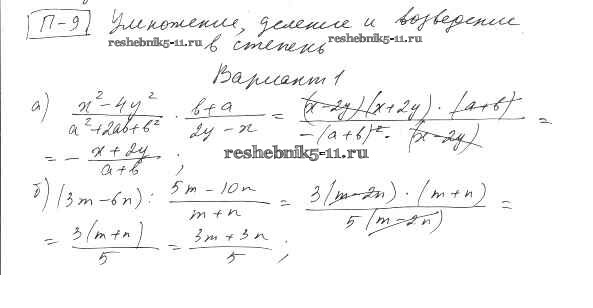 П-9 Умножение, деление и возведение
reshebnik5-11.ru в степень reshebnik5-11.ru
Вариант 1
а) (x² - 4y²)/(a² + 2ab + b²) · (b + a)/(2y - x) = ((x - 2y)(x + 2y) · (a + b))/(-(a + b)² · (x - 2y)) =
= - (x + 2y)/(a + b) ;
reshebnik5-11.ru
б) (3m - 6n) : (5m - 10n)/(m + n) = (3(m - 2n) · (m + n))/(5(m - 2n)) =
= (3(m + n))/5 = (3m + 3n)/5 ;